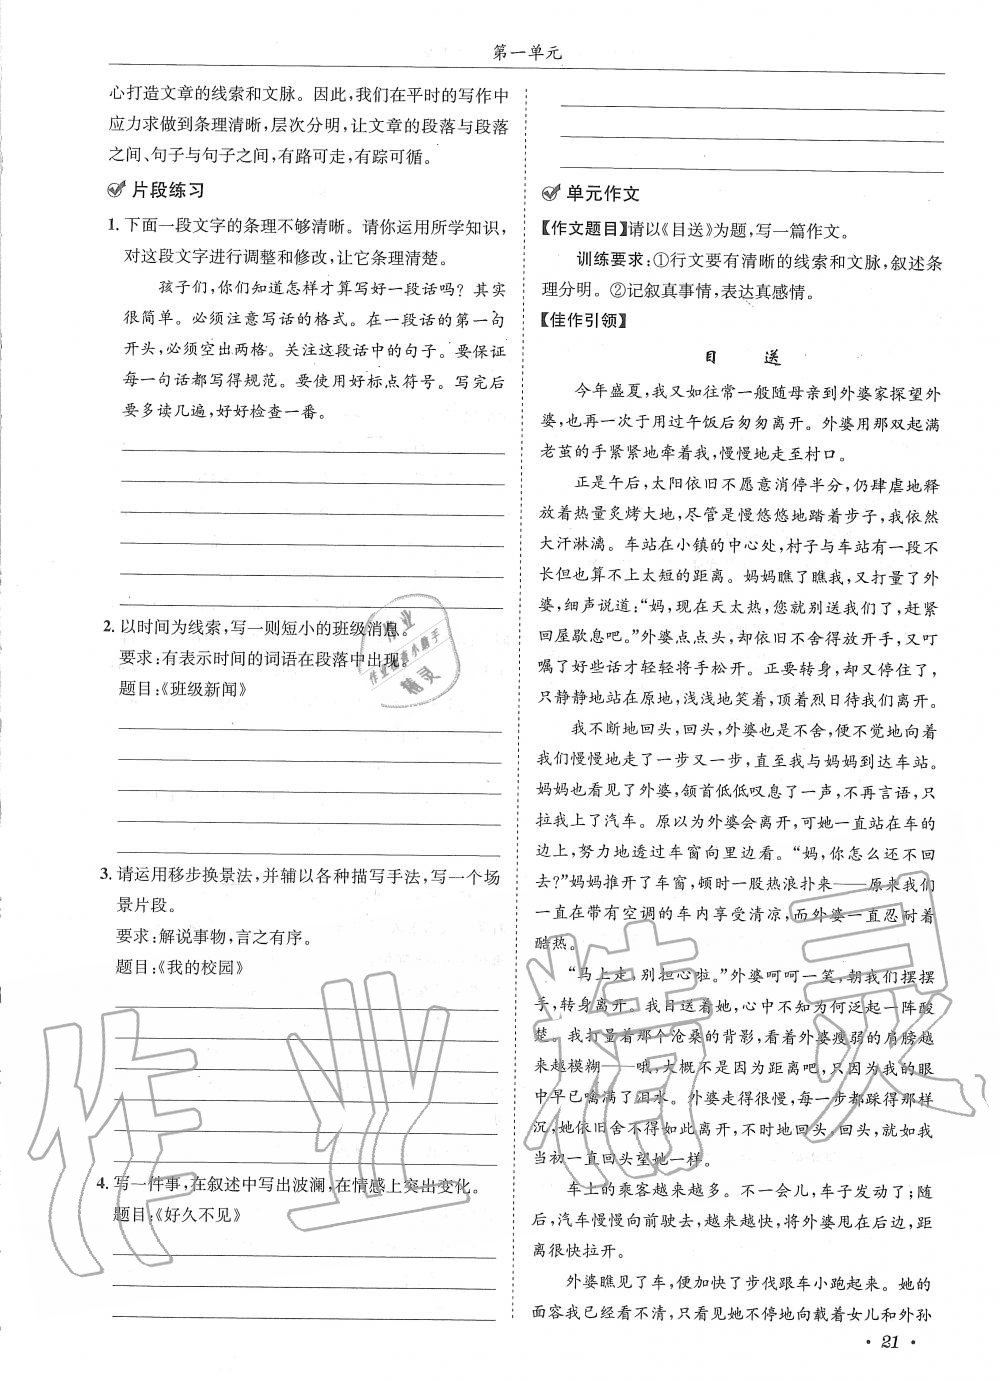 第一单元
心打造文章的线索和文脉。因此,我们在平时的写作中
应力求做到条理清晰,层次分明,让文章的段落与段落
之间、句子与句子之间,有路可走,有踪可循。
片段练习
1. 下面一段文字的条理不够清晰。请你运用所学知识,
对这段文字进行调整和修改,让它条理清楚。
孩子们,你们知道怎样才算写好一段话吗?其实
很简单。必须注意写话的格式。在一段话的第一句
开头,必须空出两格。关注这段话中的句子。要保证
每一句话都写得规范。要使用好标点符号。写完后
要多读几遍,好好检查一番。
2. 以时间为线索,写一则短小的班级消息。
要求:有表示时间的词语在段落中出现。
题目:《班级新闻》
3. 请运用移步换景法,并辅以各种描写手法,写一个场
景片段。
要求:解说事物,言之有序。
题目:《我的校园》
4. 写一件事,在叙述中写出波澜,在情感上突出变化。
题目:《好久不见》
单元作文
【作文题目】请以《目送》为题,写一篇作文。
训练要求:①行文要有清晰的线索和文脉,叙述条
理分明。②记叙真事情,表达真感情。
【佳作引领】
目 送
今年盛夏,我又如往常一般随母亲到外婆家探望外
婆,也再一次于用过午饭后匆匆离开。外婆用那双起满
老茧的手紧紧地牵着我,慢慢地走至村口。
正是午后,太阳依旧不愿意消停半分,仍肆虐地释
放着热量炙烤大地,尽管是慢悠悠地踏着步子,我依然
大汗淋漓。车站在小镇的中心处,村子与车站有一段不
长但也算不上太短的距离。妈妈瞧了瞧我,又打量了外
婆,细声说道:“妈,现在天太热,您就别送我们了,赶紧
回屋歇息吧。”外婆点点头,却依旧不舍得放开手,又叮
嘱了好些话才轻轻将手松开。正要转身,却又停住了,
只静静地站在原地,浅浅地笑着,顶着烈日待我们离开。
我不断地回头,回头,外婆也是不舍,便不觉地向着
我们慢慢地走了一步又一步,直至我与妈妈到达车站。
妈妈也看见了外婆,颔首低低叹息了一声,不再言语,只
拉我上了汽车。原以为外婆会离开,可她一直站在车的
边上,努力地透过车窗向里边看。“妈,你怎么还不回
去?”妈妈推开了车窗,顿时一股热浪扑来——原来我们
一直在带有空调的车内享受清凉,而外婆一直忍耐着
酷热。
“马上走,别担心啦。”外婆呵呵一笑,朝我们摆摆
手,转身离开。我目送着她,心中不知为何泛起一阵酸
楚。我打量着那个沧桑的背影,看着外婆瘦弱的肩膀越
来越模糊——哦,大概不是因为距离吧,只因为我的眼
中早已噙满了泪水。外婆走得很慢,每一步都踩得那样
沉,她依旧舍不得如此离开,不时地回头,回头,就如我
当初一直回头望她一样。
车上的乘客越来越多。不一会儿,车子发动了;随
后,汽车慢慢向前驶去,越来越快,将外婆甩在后边,距
离很快拉开。
外婆瞧见了车,便加快了步伐跟车小跑起来。她的
面容我已经看不清,只看见她不停地向载着女儿和外孙
· 21 ·
作业
作业检查小助手
精灵
作业精灵